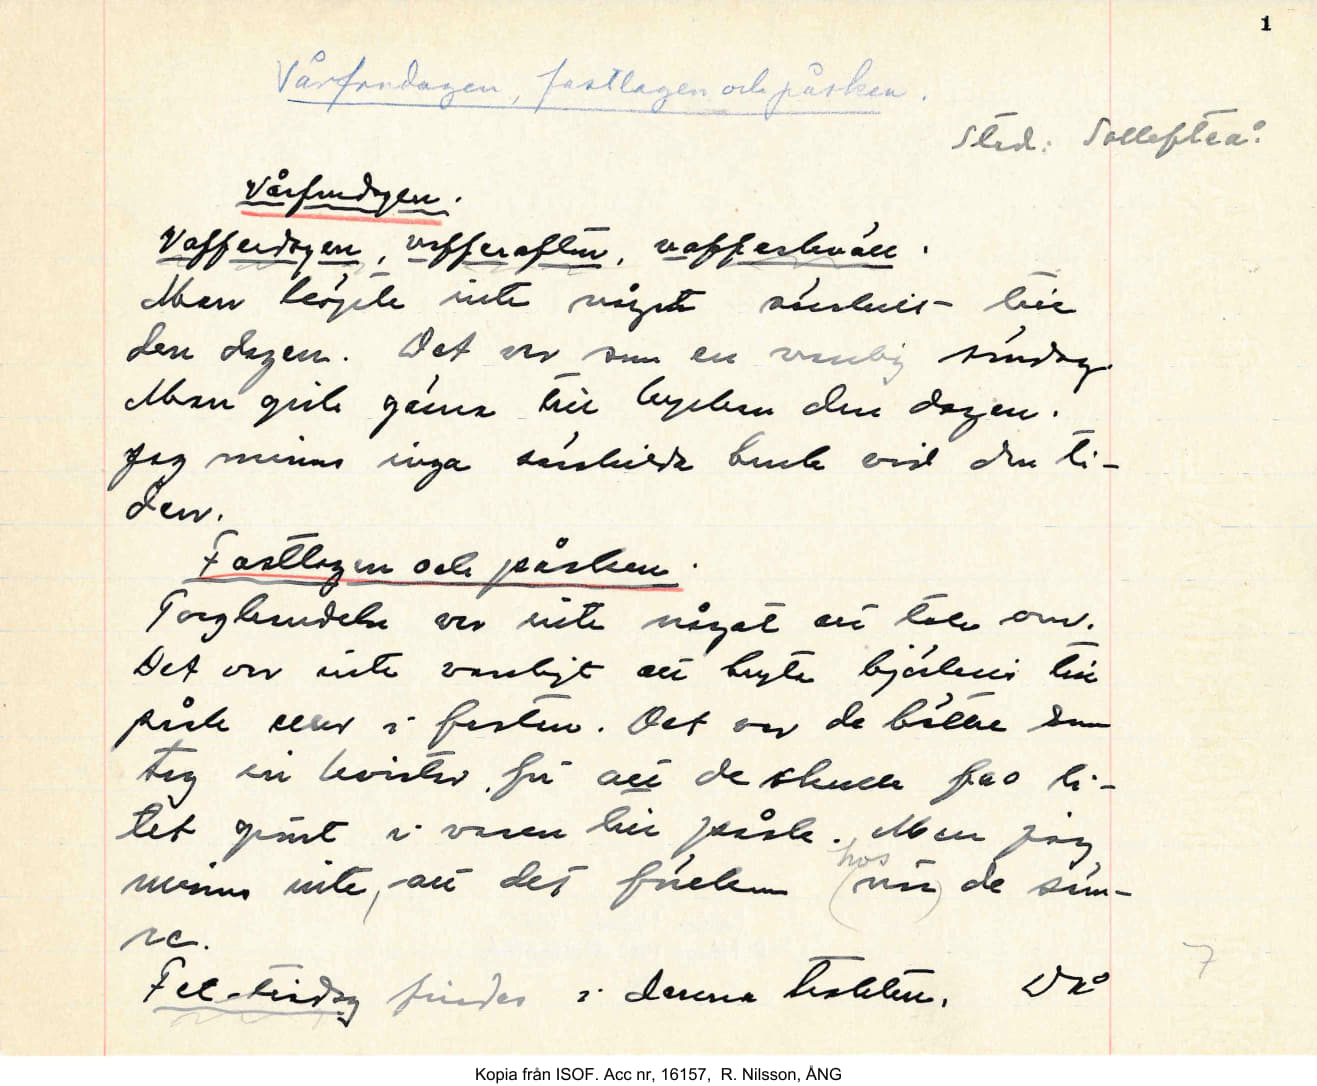 1
Vårfrudagen, fastlagen och påsken.
Sted: Sollefteå.
Vårfrudagen.
Vafferdagen, vafferafton, vafferkväll.
Man köpte inte något särskilt till
den dagen. Det var som en vanlig söndag.
Man gick gärna till kyrkan den dagen.
Jag minns inga särskilda bruk vid den ti-
den.
Fastlagen och påsken.
var inte något att tala om.
Det var inte vanligt att bryta björkris till
påsk eller i fastan. Det var de bättre som
tog in kvistar, för att de skulle få li-
tet grönt i vasen till påsk. Men jag
minns inte, att det förekom (när) de säm-
hos
re.
Fet-tisdag firades i denna trakten. Då
7
Kopia från ISOF. Acc nr, 16157, R. Nilsson, ÅNG